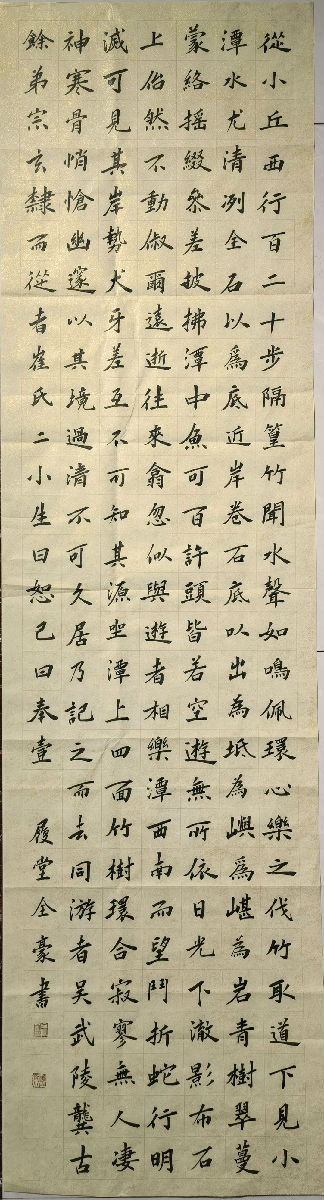 從小丘西行百二十步隔篁竹聞水聲如鳴佩環心樂之伐竹取道下見小
潭水尤清冽全石以為底近岸卷石底以出為坻為嶼為嵁為岩青樹翠蔓
蒙絡搖綴參差披拂潭中魚可百許頭皆若空遊無所依日光下澈影布石
上佁然不動俶爾遠逝往來翕忽似與遊者相樂潭西南而望鬥折蛇行明
滅可見其岸勢犬牙差互不可知其源坐潭上四面竹樹環合寂寥無人凄
神寒骨悄愴幽邃以其境過清不可久居乃記之而去同游者吴武陵龔古
餘弟宗玄隸而從者崔氏二小生曰恕己曰奉壹 履堂全豪書